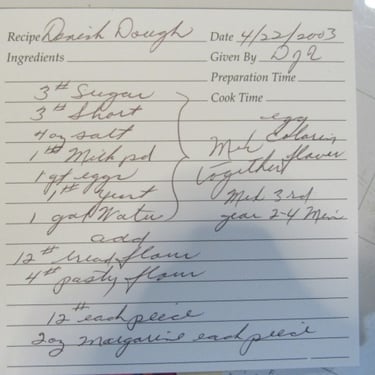 Recipe Danish Dough Date 4/22/2003
Ingredients Given By
Preparation Time
Cook Time
3# Sugar
3# Short
4 oz salt
1# Milk pd
1 qt eggs
1# Yeast
1 gal Water
egg
coloring
flavor
together
3rd
gear 2-4 Min
add
12# bread flour
4# pastry flour
12# each piece
2oz Margarine each piece